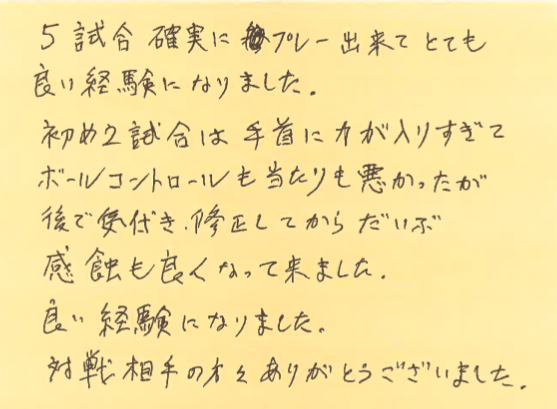 5試合 確実に プレー出来てとても
良い経験になりました。
初め2試合は手首に力が入りすぎて
ボールコントロールも当たりも悪かったが
後で気付き、修正してからだいぶ
感蝕も良くなって来ました。
良い経験になりました。
対戦相手の方々ありがとうございました。